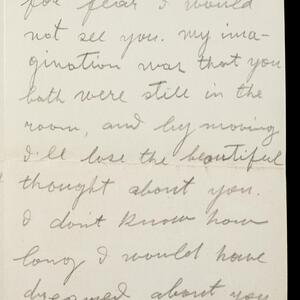 for fear I would
not see you. My ima-
gination was that you
both were still in the
room, and by moving
I'll lose the beautiful
thought about you.
I don't know how
long I would have
dreamed about you